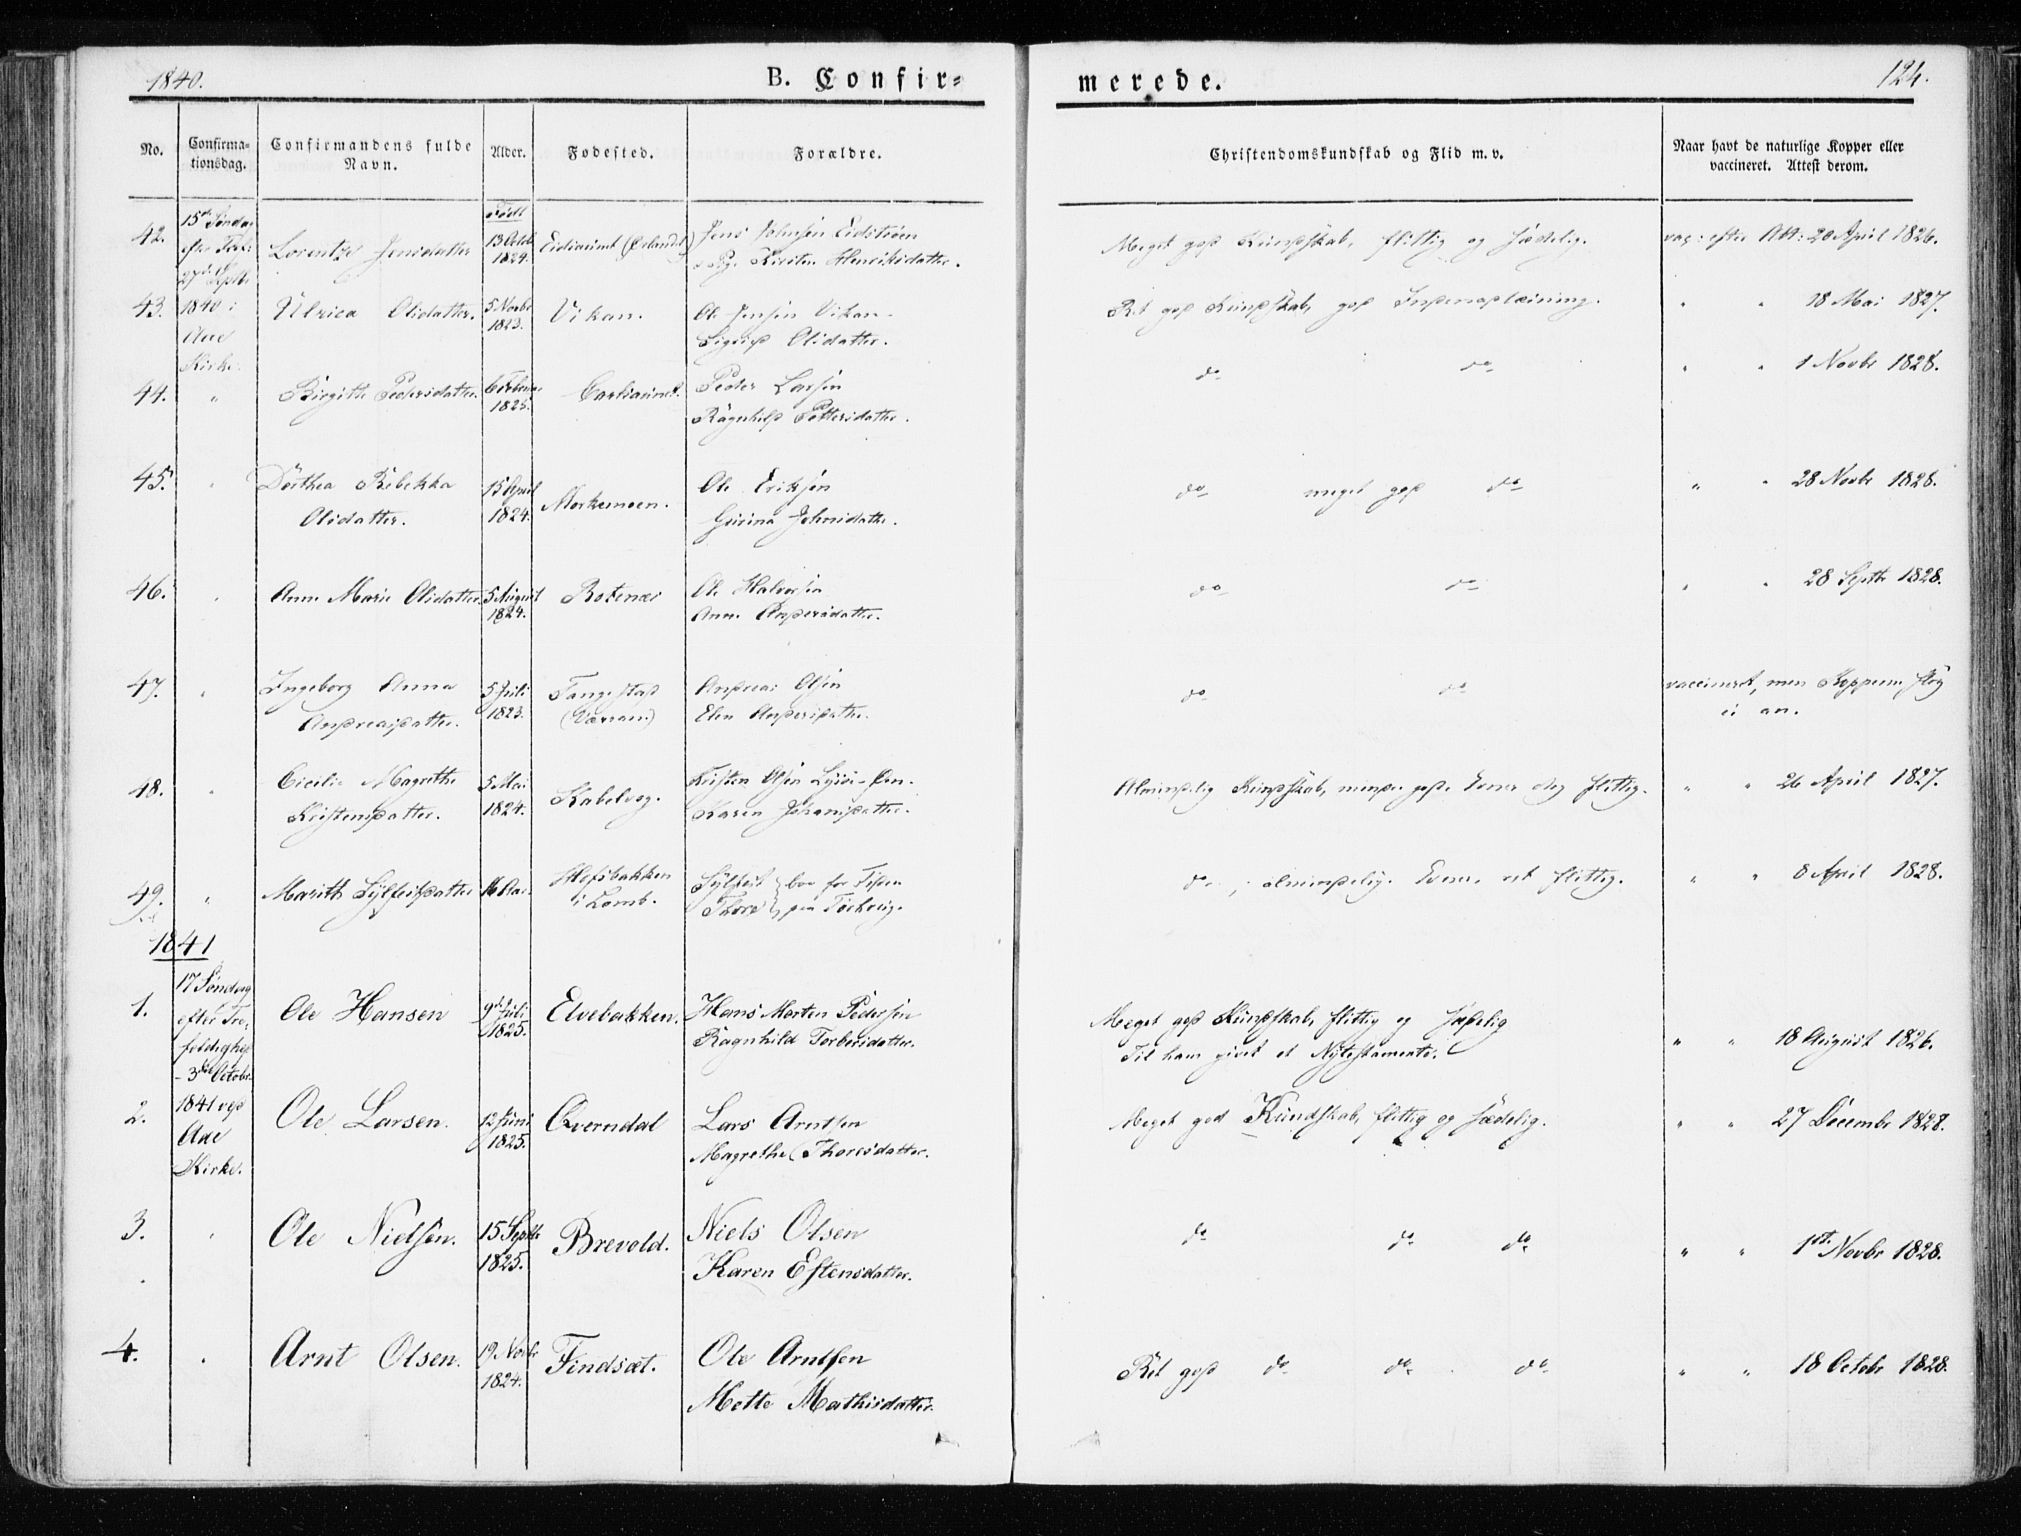 1840.
B. Confir=
merede.
124.
No.
Confirma=
tionsdag.
Confirmandens fulde
Navn.
Alder.
Fødested.
Forældre.
Christendomskundskab og Flid m.v.
Naar havt de naturlige Kopper eller
vaccineret. Attest derom.
42.
15de Søndag
efter
27de Septbr
1840 i
Aae
Kirke.
Lorentze Jensdatter
Født
13 Octob
1824.
Jens Johnsen
Kirsten Henriksdatter.
Meget god Kundskab, flittig og sædelig.
vac: efter Att: 20 April 1826.
43.
Ulrica Olsdatter.
5 Novbr
1823.
Vikan.
Ole Jensen Vikan
Sigrid Olsdatter.
Ret god Kundskab, god
" " 18 Mai 1827.
44. "
Birgithe Pedersdatter.
6 Februar
1825.
Peder Larsen
Ragnhild Pettersdatter.
do do
" " 1 Novbr 1828.
45. "
Dorthea Rebekka
Olsdatter.
15 April
1824.
Morkemoen.
Ole Eriksen
Gurina Johnsdatter.
do meget god do
" " 28 Novbr 1828.
46. "
Anne Marie Olsdatter
5 August
1824.
Ole Halvorsen
Anne Andersdatter.
do do
" " 28 Septbr 1828.
47. "
Ingeborg Anna
Andreasdatter.
5 Juli
1823.
Tangestad
Andreas Olsen
Elen Andersdatter.
do do
vaccineret, men Kopperne slog
ei an.
48. "
Cicilie Magrethe
Kristensdatter.
5 Mai
1824.
Kabelvog.
Kristen Olsen
Karen Johansdatter.
Almindelig Kundskab, mindre gode Evner dog flittig.
" " 26 April 1827.
49. "
Marith Sylfestdatter
16 Aar.
i Lomb.
Sylfest
Thore
do , almindelig Evner, ret flittig.
" " 8 April 1828.
1841
1.
17 Søndag
efter Tre,
foldighed
- 3die Octobr
1841 ved
Aae
Kirke.
Ole Hansen
9de Juli
1825.
Elvebakken.
Hans Morten Pedersen
Ragnhild Torbersdatter.
Meget god Kundskab, flittig og sædelig
Til ham givet et Nytestamente.
" " 18 August 1826.
2.
Ole Larsen.
12 Juni
1825.
Qverndal
Lars Arntsen
Magrethe Thoresdatter.
Meget god Kundskab, flittig og sædelig.
" " 27 Decembr 1828.
3. "
Ole Nielsen.
15 Septbr
1825.
Brevold.
Niels Olsen
Karen Estensdatter.
do do do
" " 1st. Novbr 1828.
4. "
Arnt Olsen.
19 Novbr
1824.
Findsæt.
Ole Arntsen
Mette Mathisdatter.
Ret god do do do
" " 18 Octobr 1828.